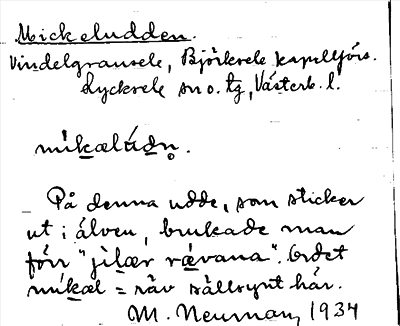 Mickeludden.
Vindelgransele, Björksele kapellförs.
Lycksele sn o. tg, Västerb. l.
mikælúdṇ.
På denna udde, som sticker
ut i älven, brukade man
förr "jilær rævana". Ordet
mikæl = räv sällsynt här.
M. Neuman, 1934